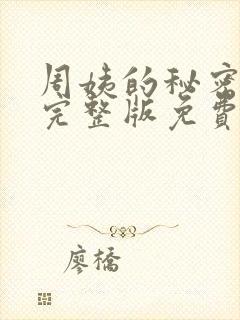 周姨的秘密
完整版免費
廖橋